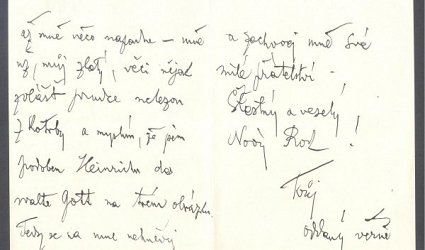 až mně něco napadne – mně
už, můj zlatý, věci nějak
zvlášť prudce nelezou
z Kotrby a myslím, že jsem
podoben Heinrichu der
walte Gott na Tvém obrázku.
Tedy se na mne nehněvej
a zachovej mně Své
milé přátelství.
Šťastný a veselý
Nový Rok!
Tvůj
oddaný věrně